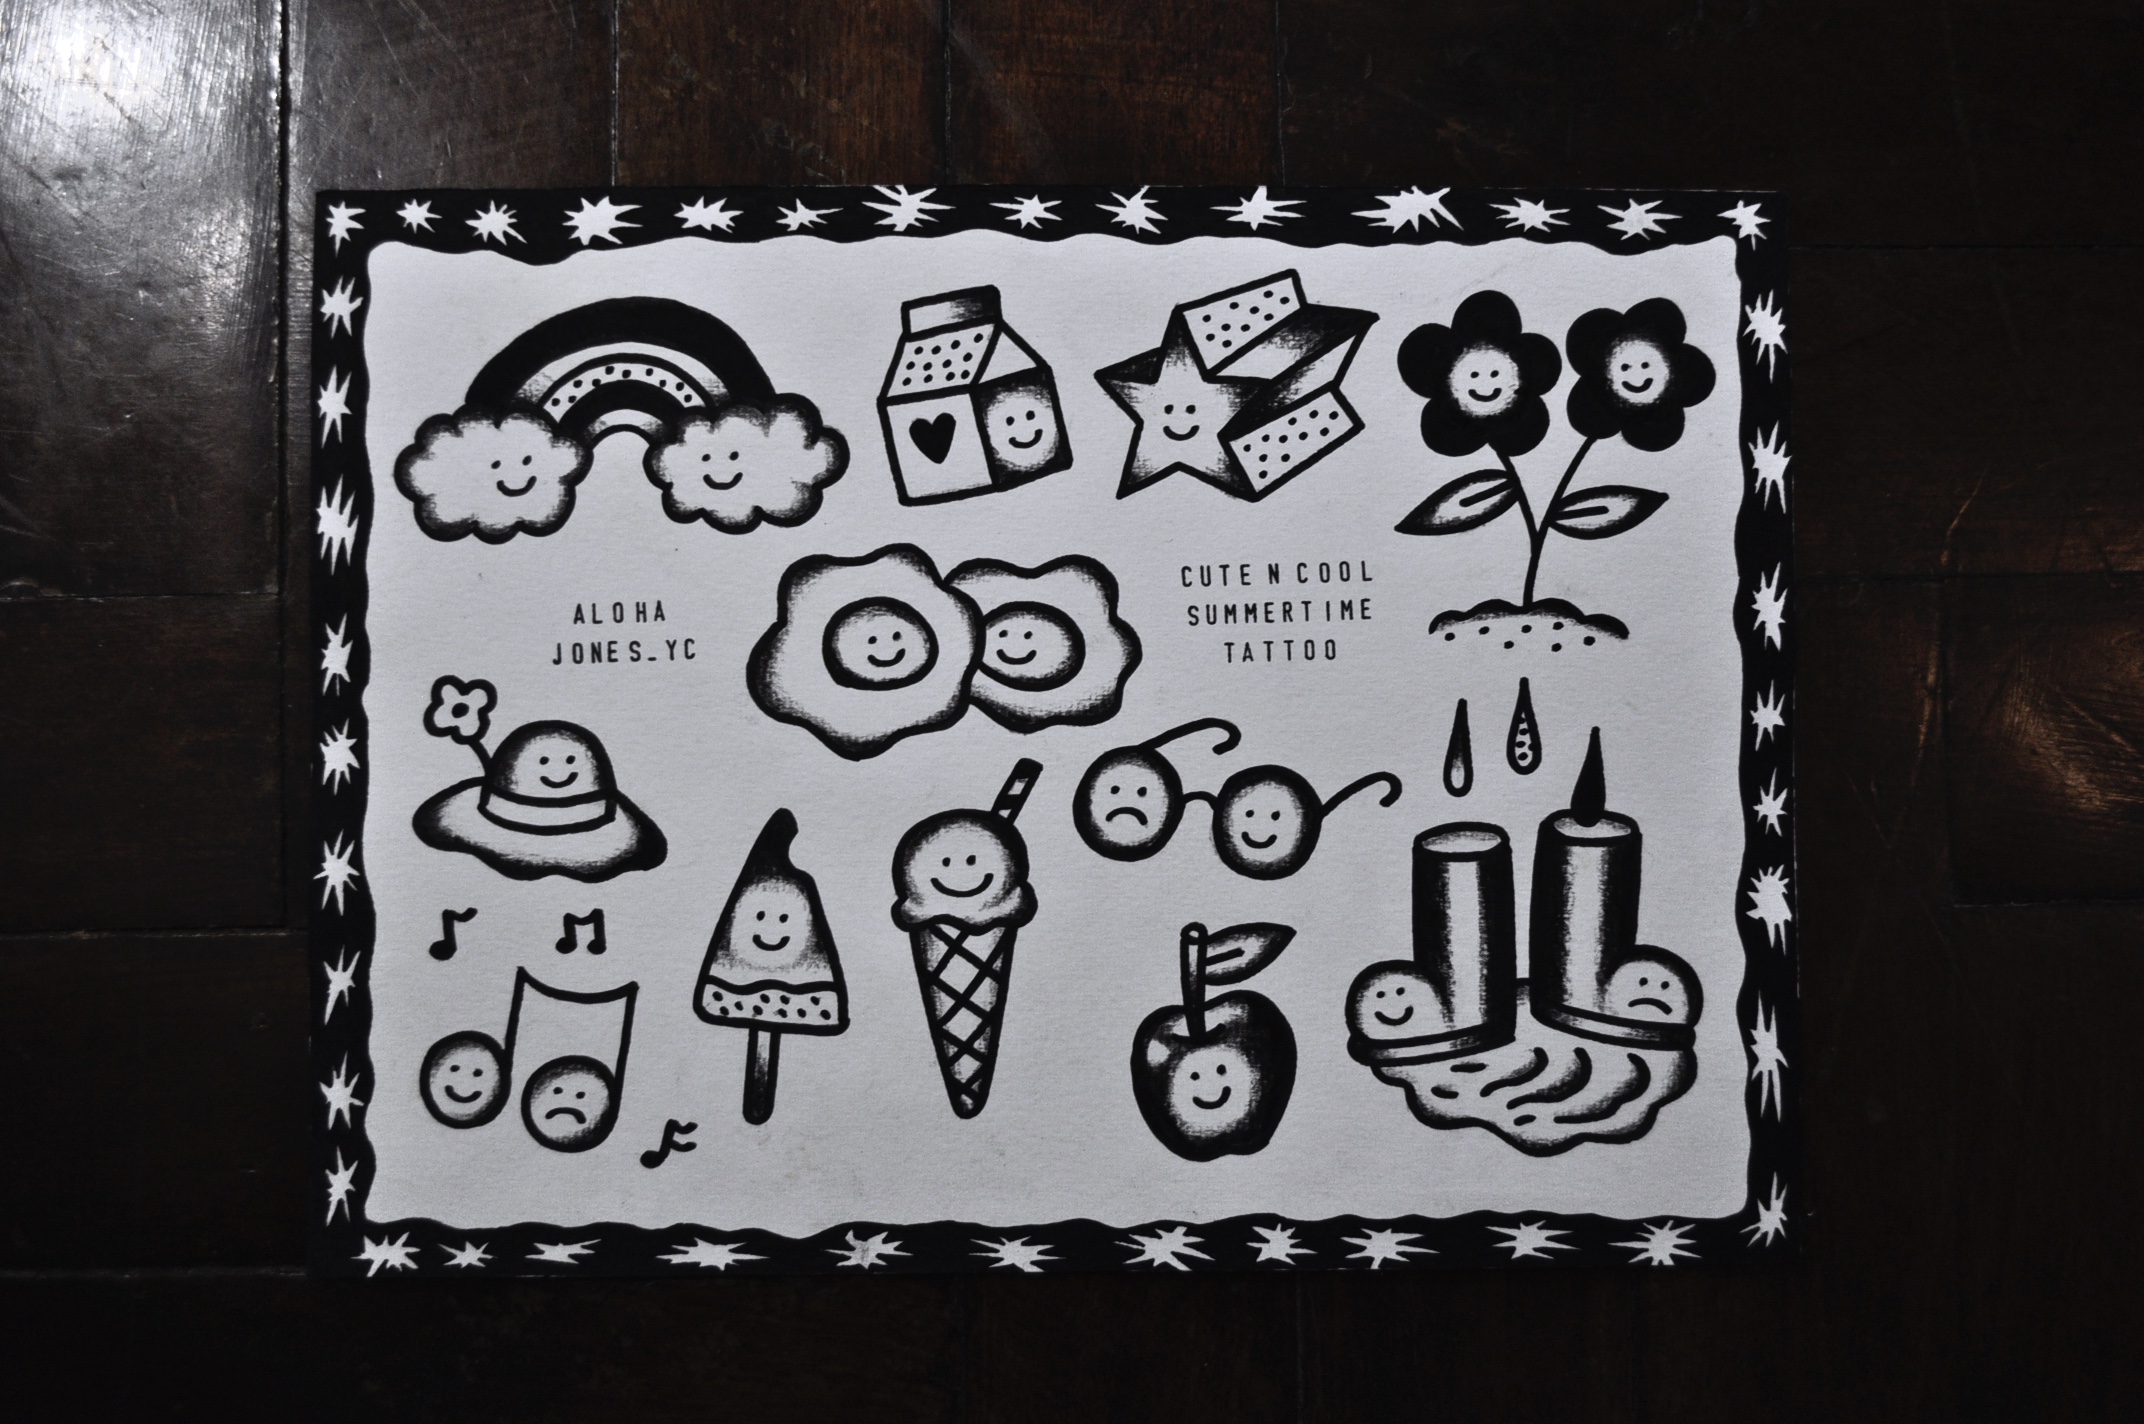 ALOHA
JONES_YC
CUTE N COOL
SUMMERTIME
TATTOO